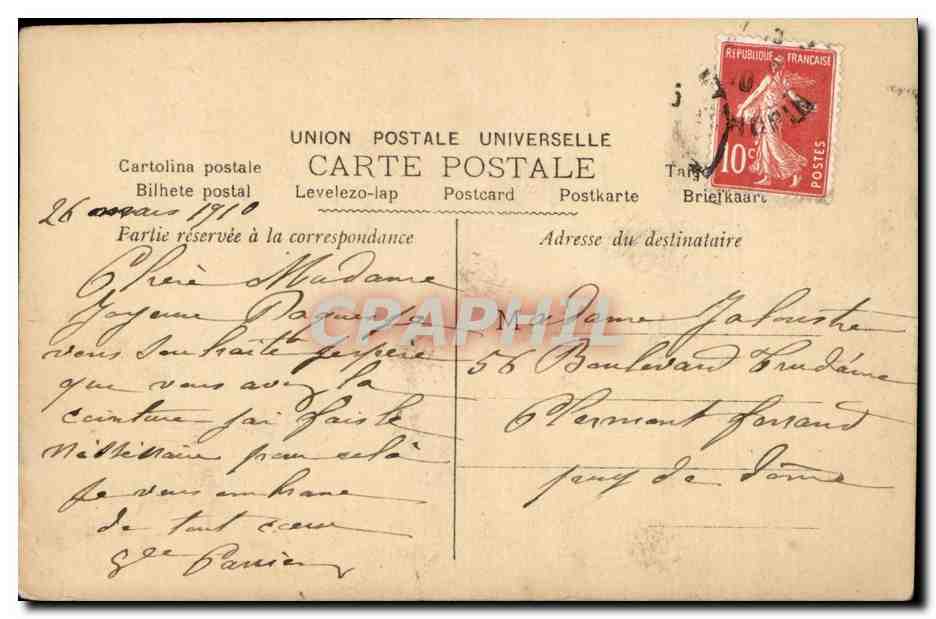 RÉPUBLIQUE FRANÇAISE
10c
POSTES
UNION POSTALE UNIVERSELLE
CARTE POSTALE
Cartolina postale
Bilhete postal Levelezo-lap Postcard Postkarte Briefkaart
26 mars 1910
Partie réservée à la correspondance
Chère Madame
Joyeuse Paques
vous souhaite jespère
que vous avez la
ceinture jai fais le
néssessaire pour cela
Je vous embrasse
de tout cœur
Adresse du destinataire
Madame Jaloustre
56 Boulevard Trudaine
Clermont ferrand
puy de dôme
CPAPHIL